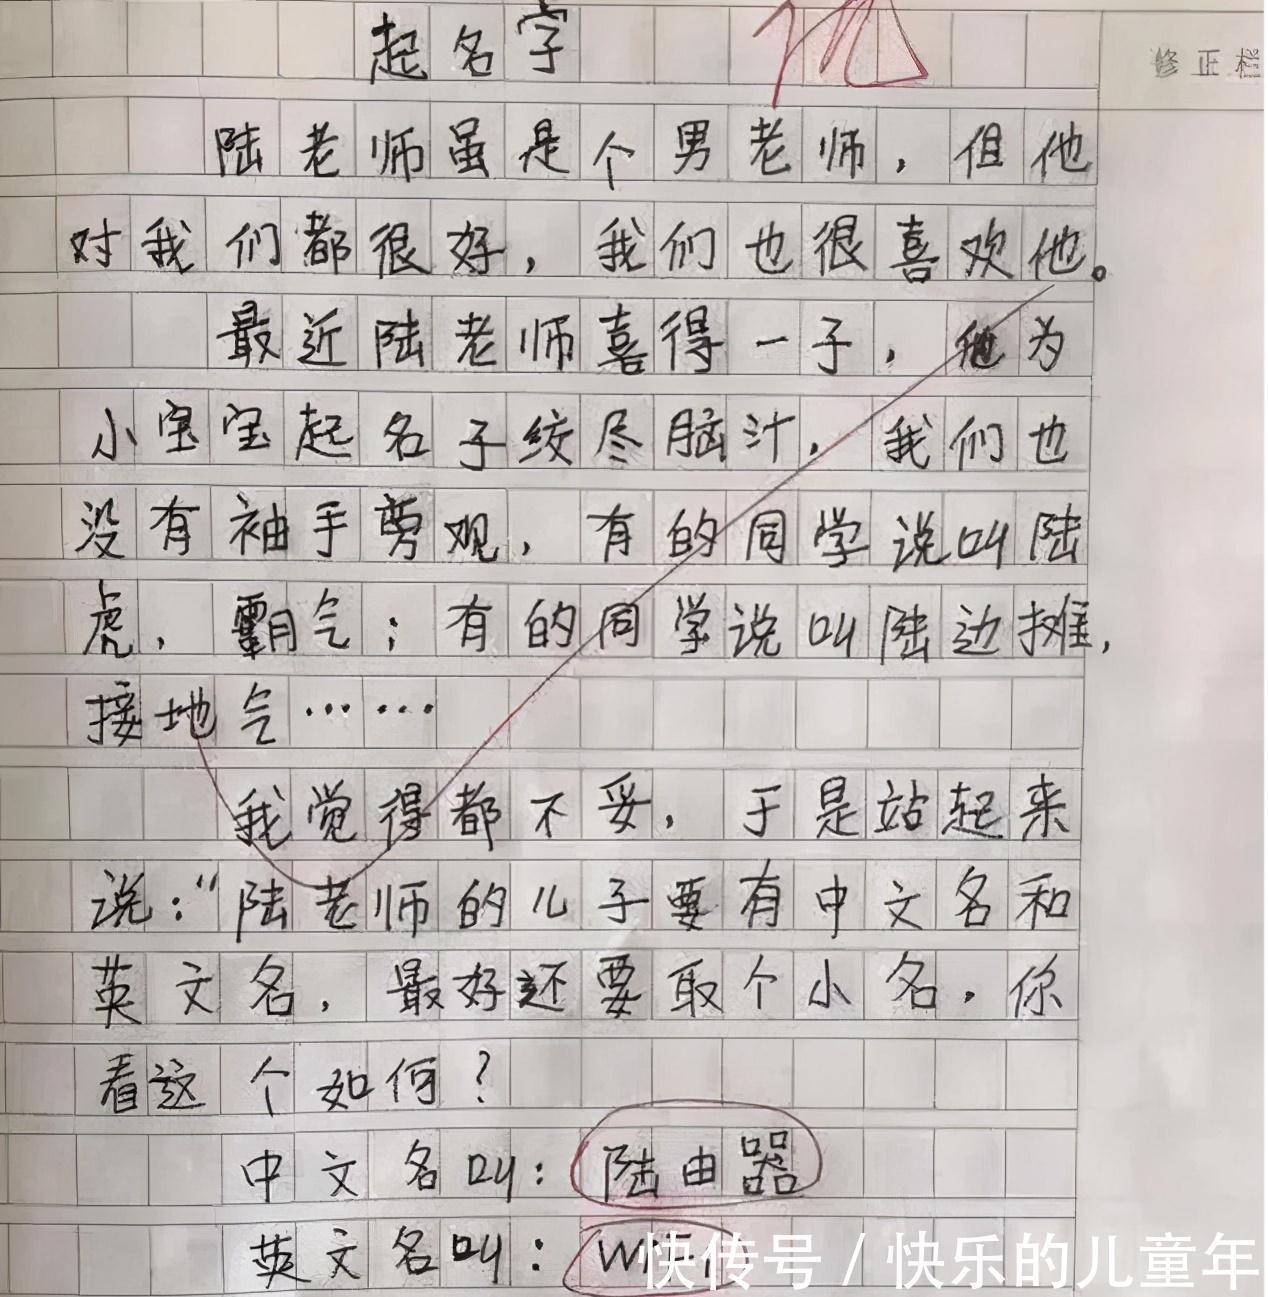 起名字
修正栏
陆老师虽是个男老师，但他
对我们都很好，我们也很喜欢他。
最近陆老师喜得一子，他为
小宝宝起名子绞尽脑汁，我们也
没有袖手旁观，有的同学说叫陆
虎，霸气；有的同学说叫陆边摊，
接地气……
我觉得都不妥，于是站起来
说：“陆老师的儿子要有中文名和
英文名，最好还要取个小名，你
看这个如何？
中文名叫：陆由器
英文名叫：WiFi
快传号/快乐的儿童年